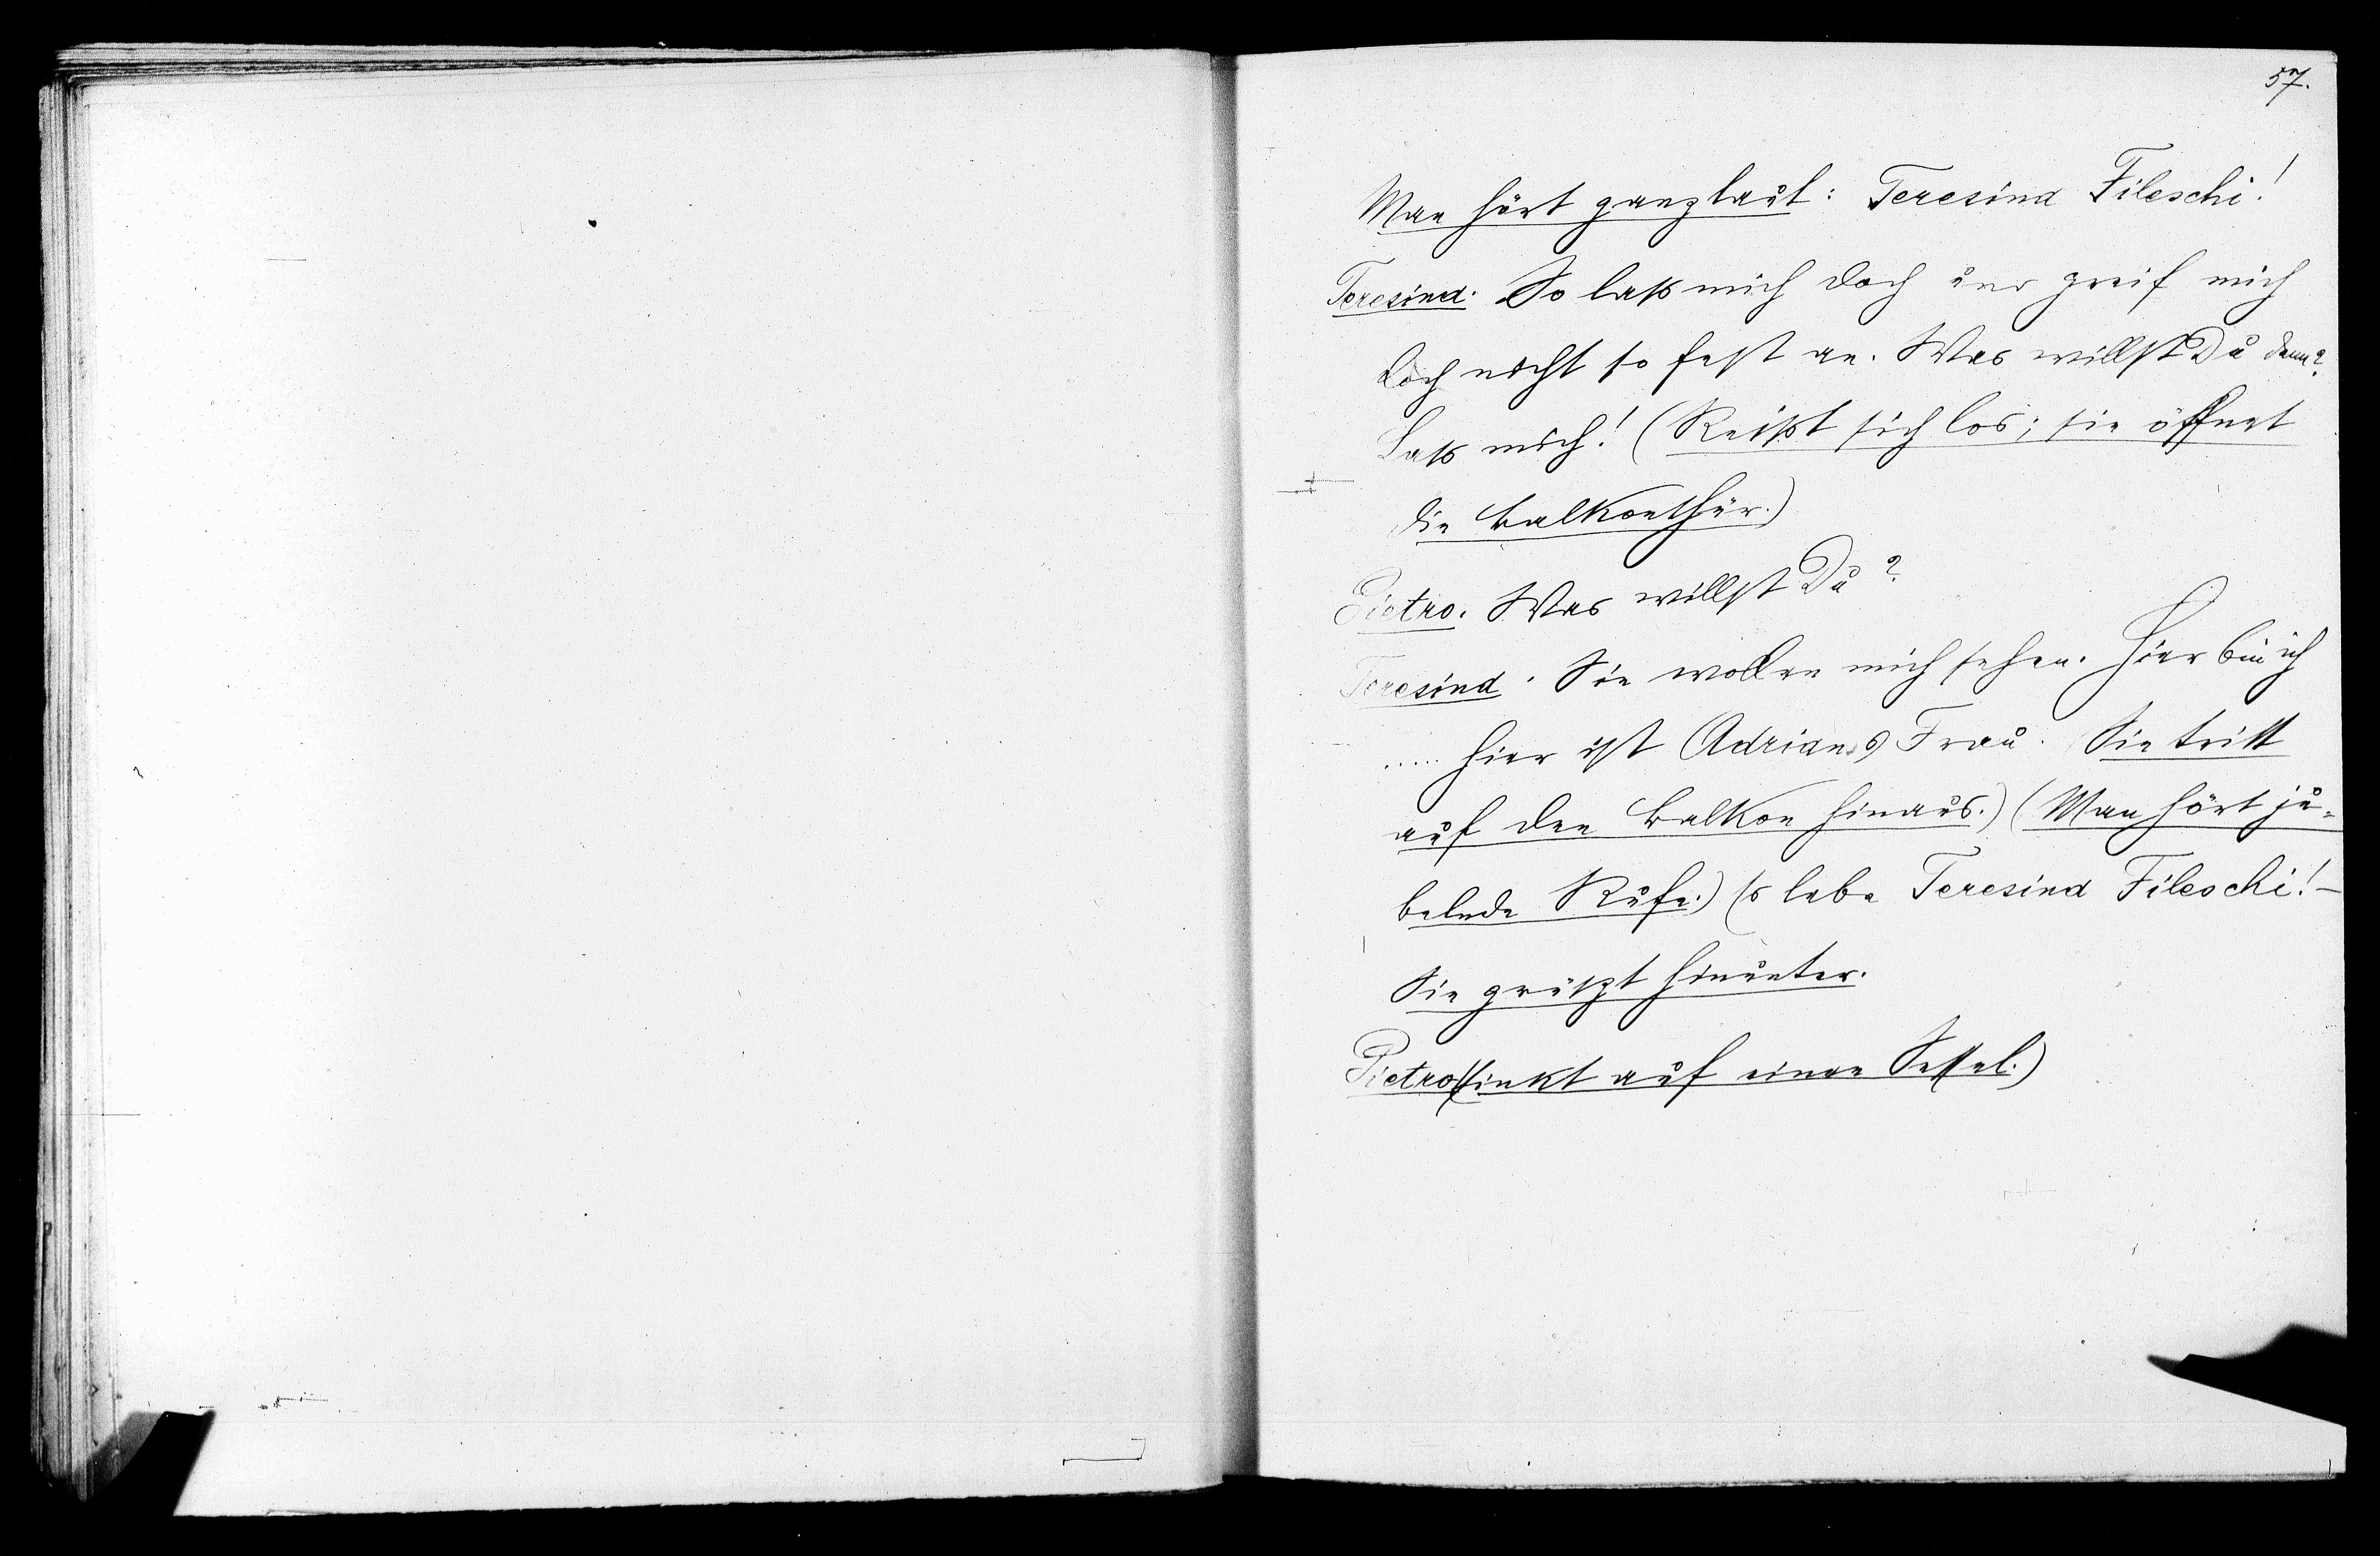 57.
Man hört ganz laut: Teresina Fileschi!
Teresina. So laß mich doch und greif mich
doch nicht so fest an. Was willst Du denn?
Laß mich! (Reißt sich los; sie öffnet
die Balkonthür.)
Pietro. Was willst Du?
Teresina. Sie wollen mich sehen. Hier bin ich
..... hier ist Adrianos Frau. Sie tritt
auf den Balkon hinaus.) (Man hört ju-
belnde Rufe.) Es lebe Teresina Fileschi! –
Sie grüßt hinunter.
Pietro (sinkt auf einen Sessel.)